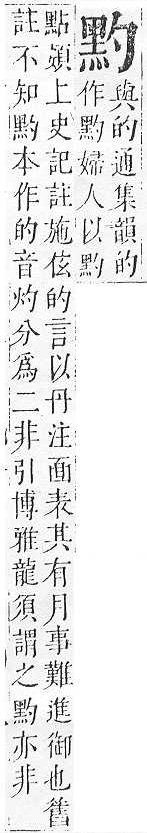 黓
與的通集韻的
作黓婦人以黓
點頞上史記註施伭的言以丹注面表其有月事難進御也舊
註不知黓本作的音灼分爲二非引博雅龍須謂之黓亦非